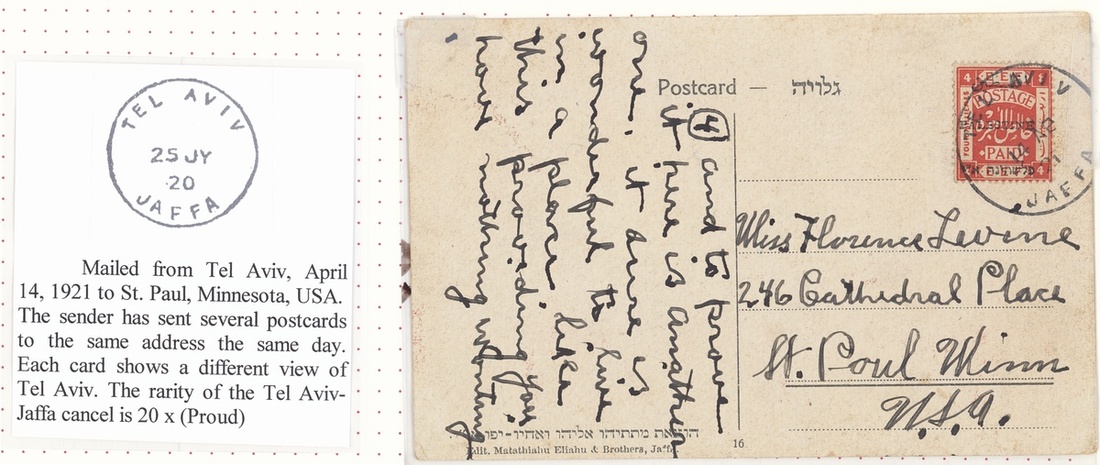 TEL AVIV
25 JY
20
JAFFA
Mailed from Tel Aviv, April
14, 1921 to St. Paul, Minnesota, USA.
The sender has sent several postcards
to the same address the same day.
Each card shows a different view of
Tel Aviv. The rarity of the Tel Aviv-
Jaffa cancel is 20 x (Proud)
Postcard — גלויה
4 E.E.F. 4
POSTAGE
PALESTINE
PAID
4 4
AVIV
14 AP
21
JAFFA
4 and to prove
it here is another
one. it sure is
wonderful to live
in a place like
this providing you
have nothing worrying
Miss Florence Levine
246 Cathedral Place
St. Poul Minn
U.S.A.
הוצאת מתתיהו אליהו ואחיו-יפו
Edit. Matathiahu Eliahu & Brothers, Jaffa
16